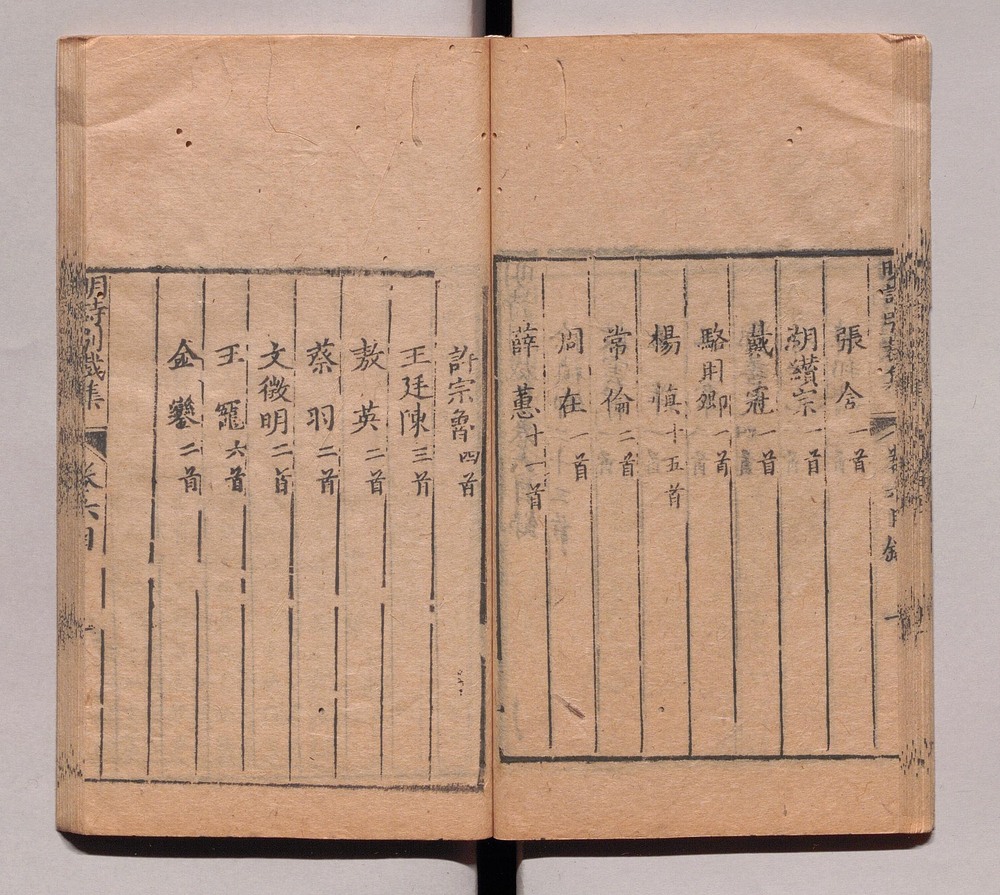 張含一首
胡纘宗一首
戴冠一首
駱用卿一首
楊慎十五首
常倫二首
周在一首
薛蕙十一首
許宗魯四首
王廷陳三首
敖英二首
蔡羽二首
文徵明二首
王寵六首
金鑾二首
明詩別裁集 卷六目